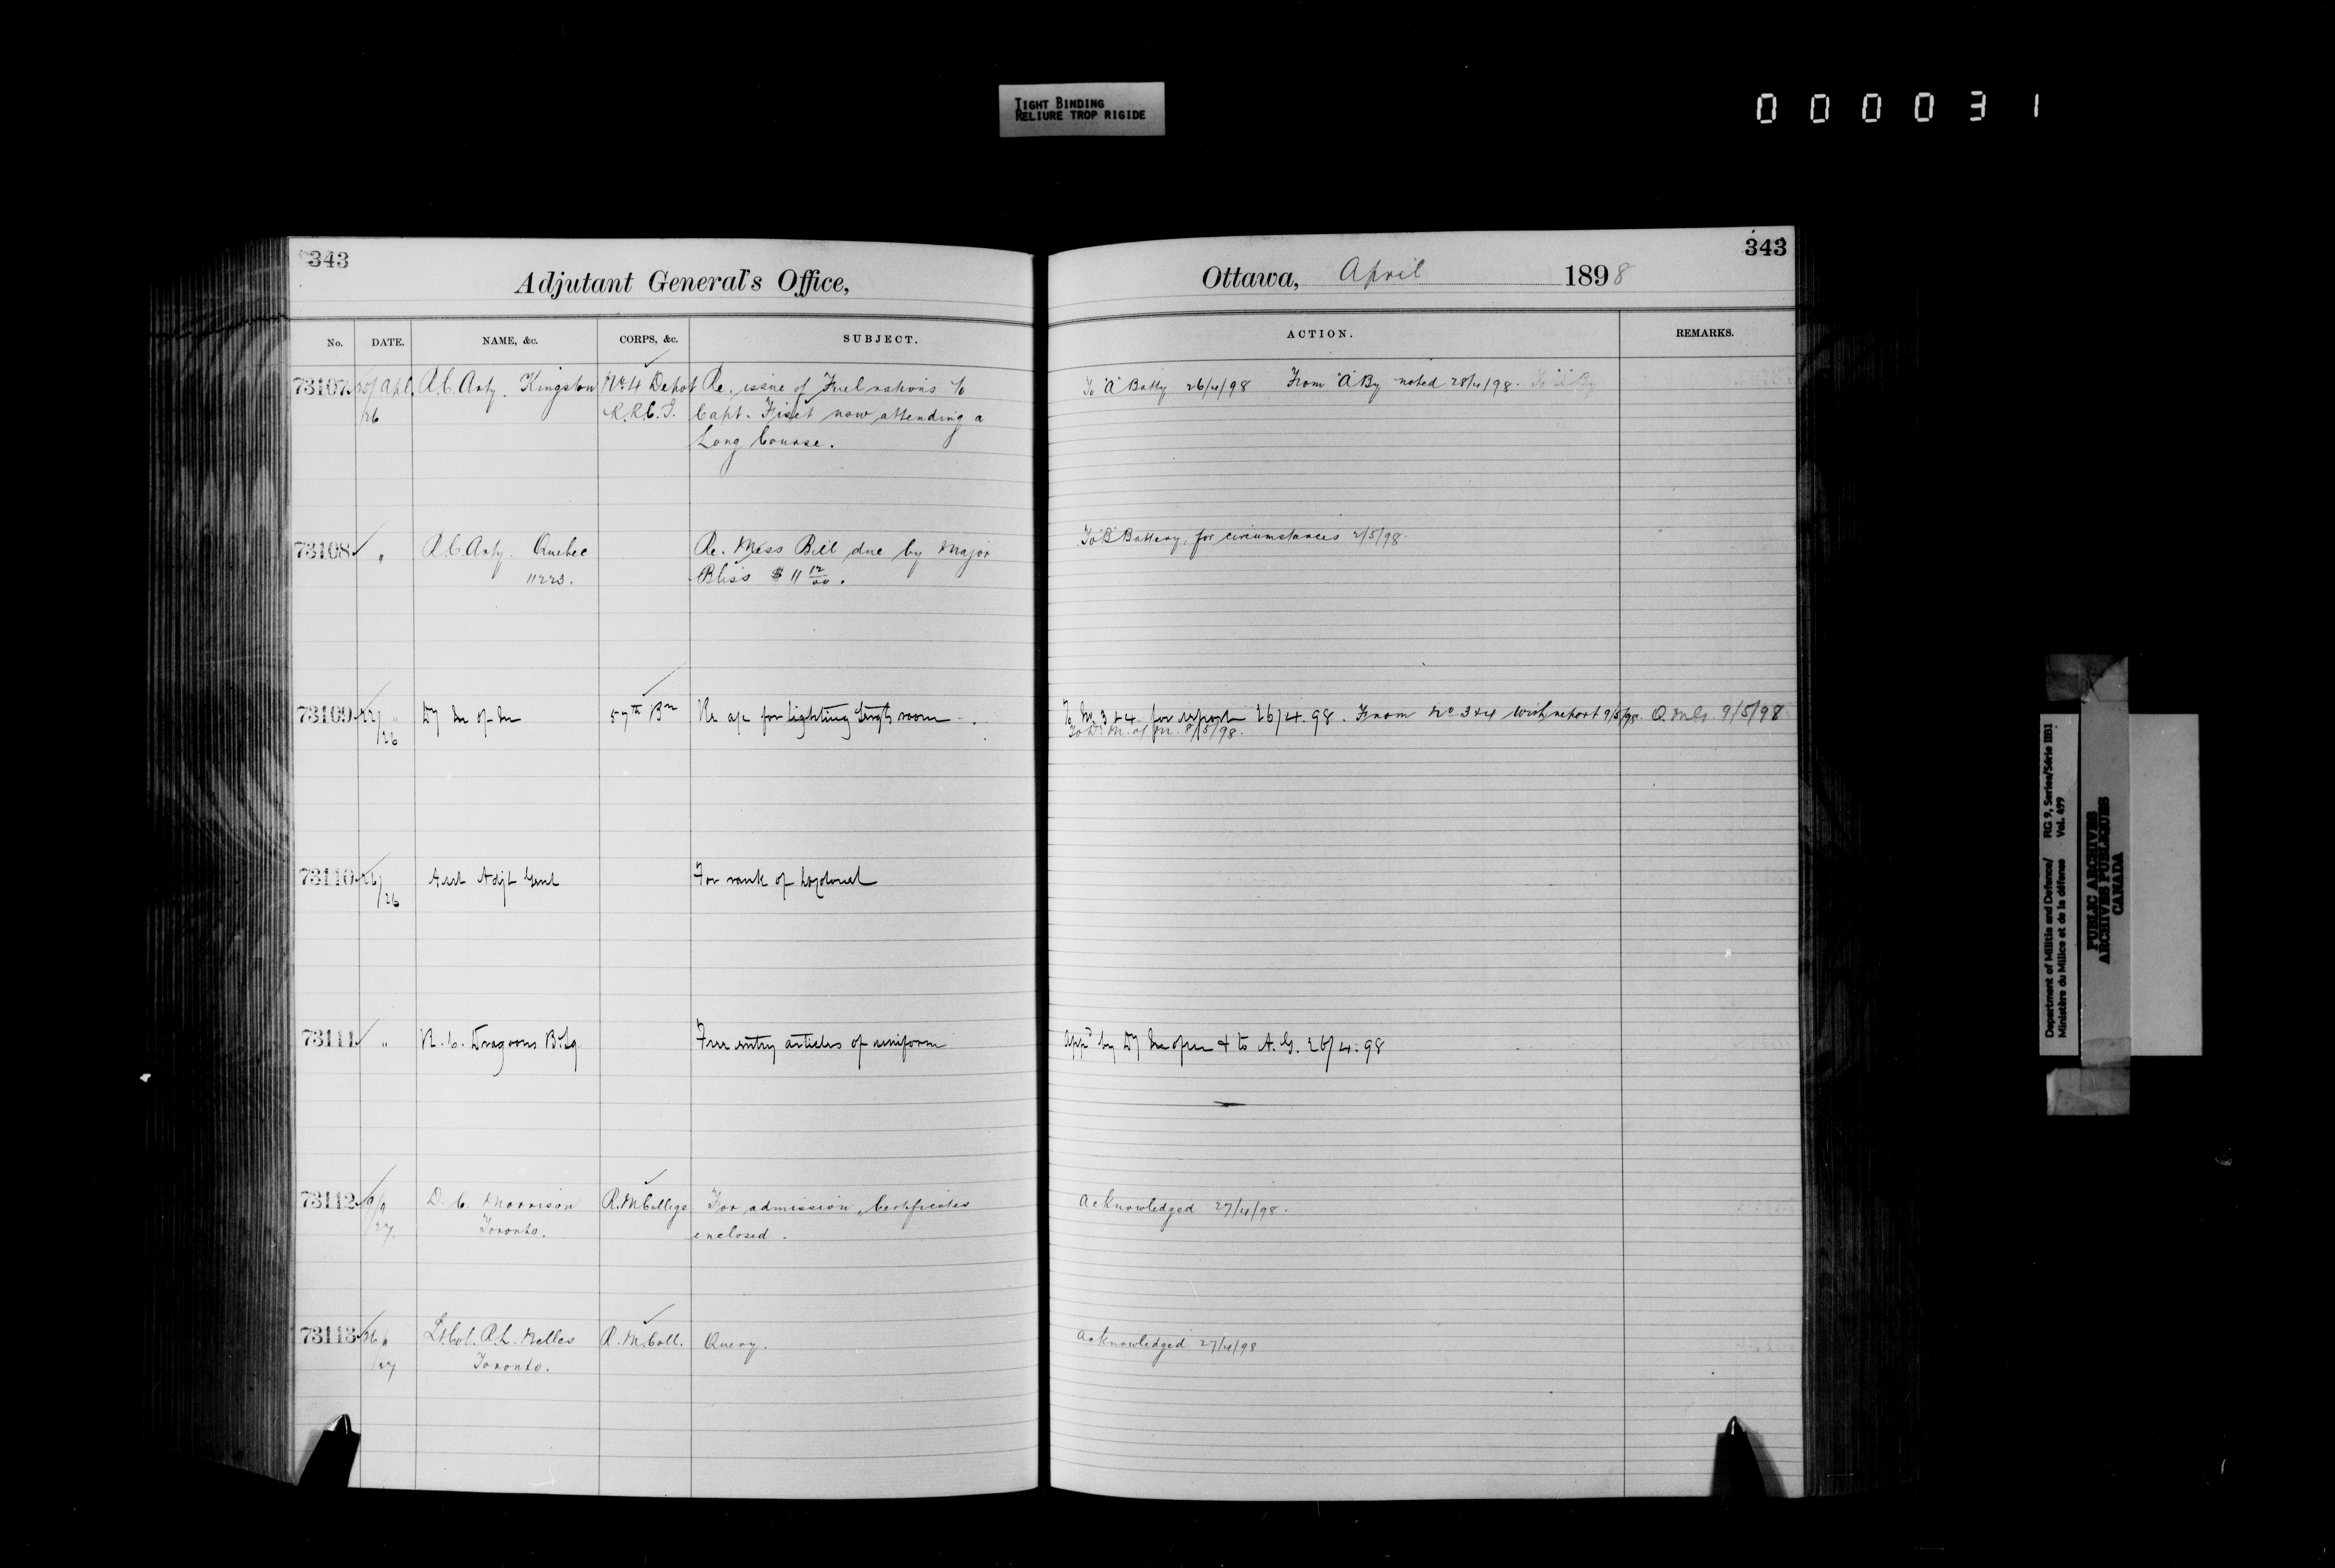 TIGHT BINDING
RELIURE TROP RIGIDE
000031
343
Adjutant General's Office,
No. DATE. NAME, &c. CORPS, &c. SUBJECT.
73107 25/Apl R.C. Arty. Kingston No. 4 Depot Re. issue of Fuel rations to
/26 R.R.C.I. Capt. Fiset now attending a
Long Course.
73108 " R.C. Arty. Quebec Re. Mess Bill due by Major
11223. Bliss $11 12/00.
73109 22/ " 57th Bn Re a/c for lighting room
/26
73110 26/ Asst Adjt Genl For rank of
/26
73111 " R.C. Dragoons Free entry articles of uniform
73112 D. C. Morrison R.M. College For admission, Certificates
/27. Toronto. enclosed.
73113 26/" Lt Col. R.L. Nelles R.M. Coll. Query.
/27 Toronto.
343
Ottawa, April 1898
ACTION. REMARKS.
To "A" Batty 26/4/98 From "A" By noted 28/4/98. To "A" By
To "B" Battery, for circumstances 2/5/98.
To 3 & 4 for report 26/4.98. From No 3 & 4 with report 9/5/98. Q.M.G. 9/5/98
To D. M. of M. 8/5/98.
App'd by & to A.G. 26/4.98
Acknowledged 27/4/98.
Acknowledged 27/4/98
Department of Militia and Defence/ RG 9, Series/Série IIB1
Ministère du Milice et de la défense Vol. 499
PUBLIC ARCHIVES
ARCHIVES PUBLIQUES
CANADA